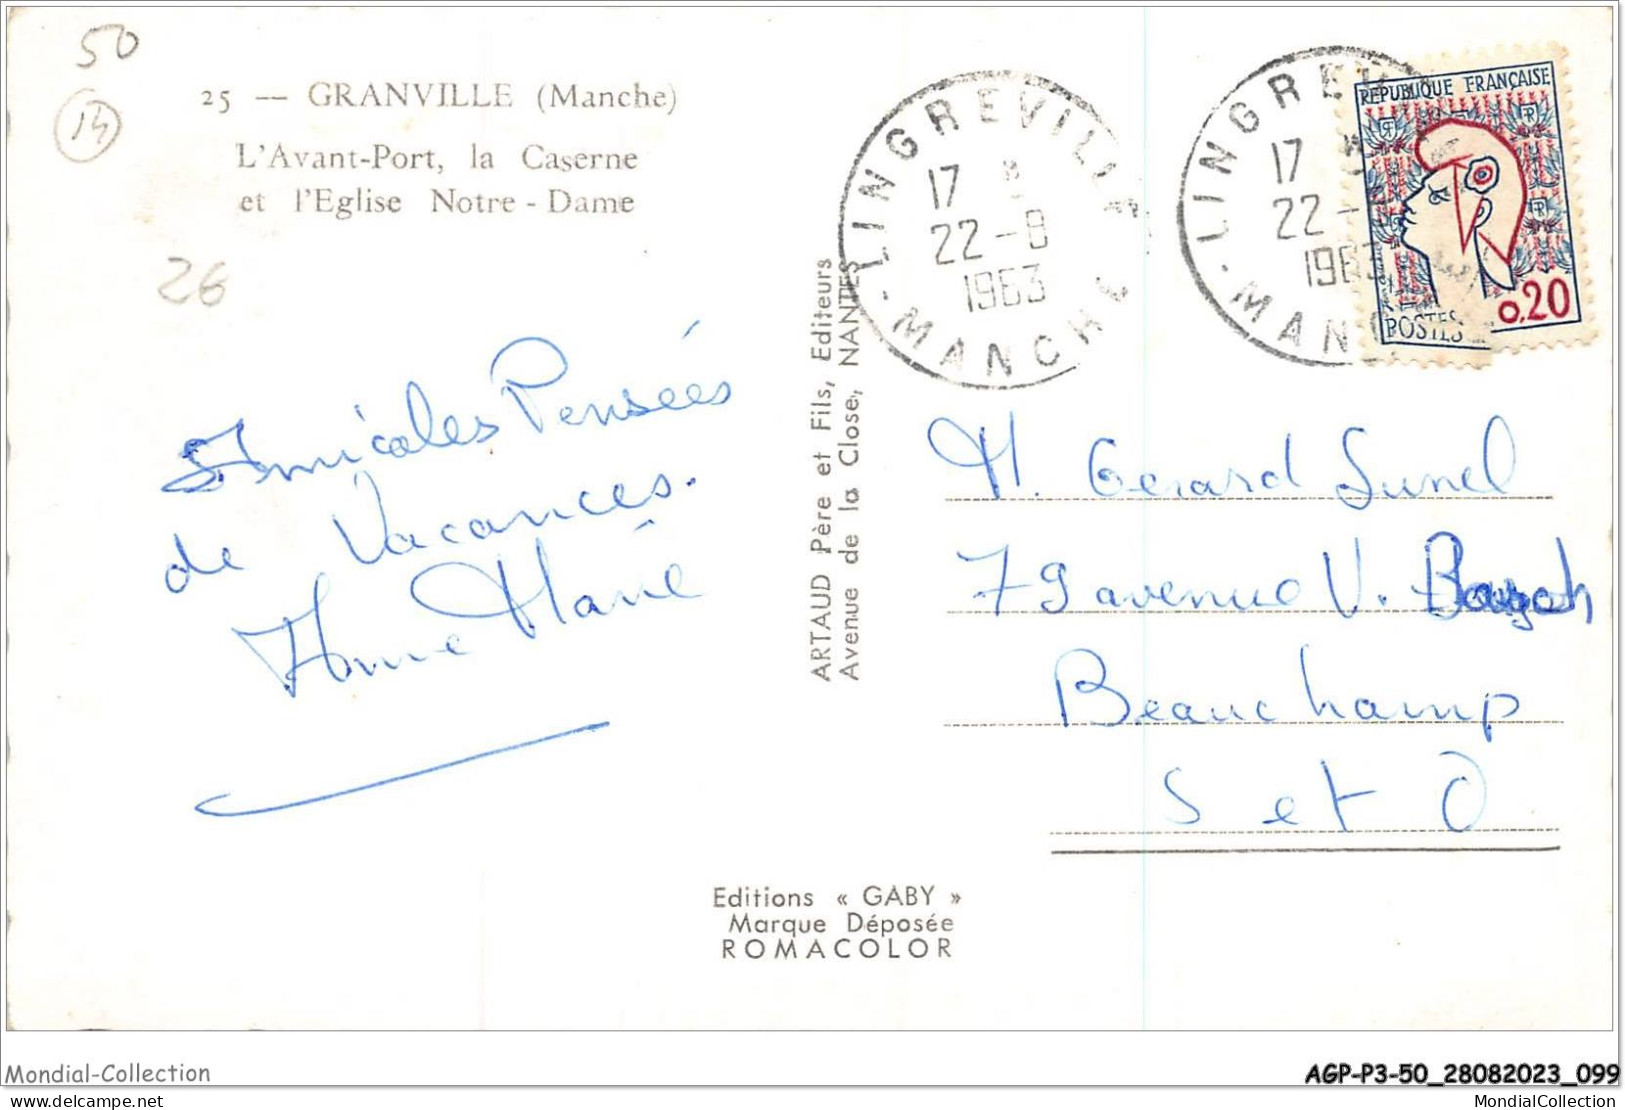 50
25 — GRANVILLE (Manche)
L'Avant-Port, la Caserne
et l'Eglise Notre-Dame
26
Amicales Pensées
de Vacances.
Anne Marie
ARTAUD Père et Fils, Editeurs
Avenue de la Close, NANTES
LINGREVILLE
17 H
22-8
1963
MANCHE
LINGREV
17 H
22-
1963
MAN
REPUBLIQUE FRANÇAISE
0,20
POSTES
M. Gerard Sunel
79 avenue V.
Beauchamp
S et O
Editions « GABY »
Marque Déposée
ROMACOLOR
Mondial-Collection
AGP-P3-50_28082023_099
delcampe.net
MondialCollection